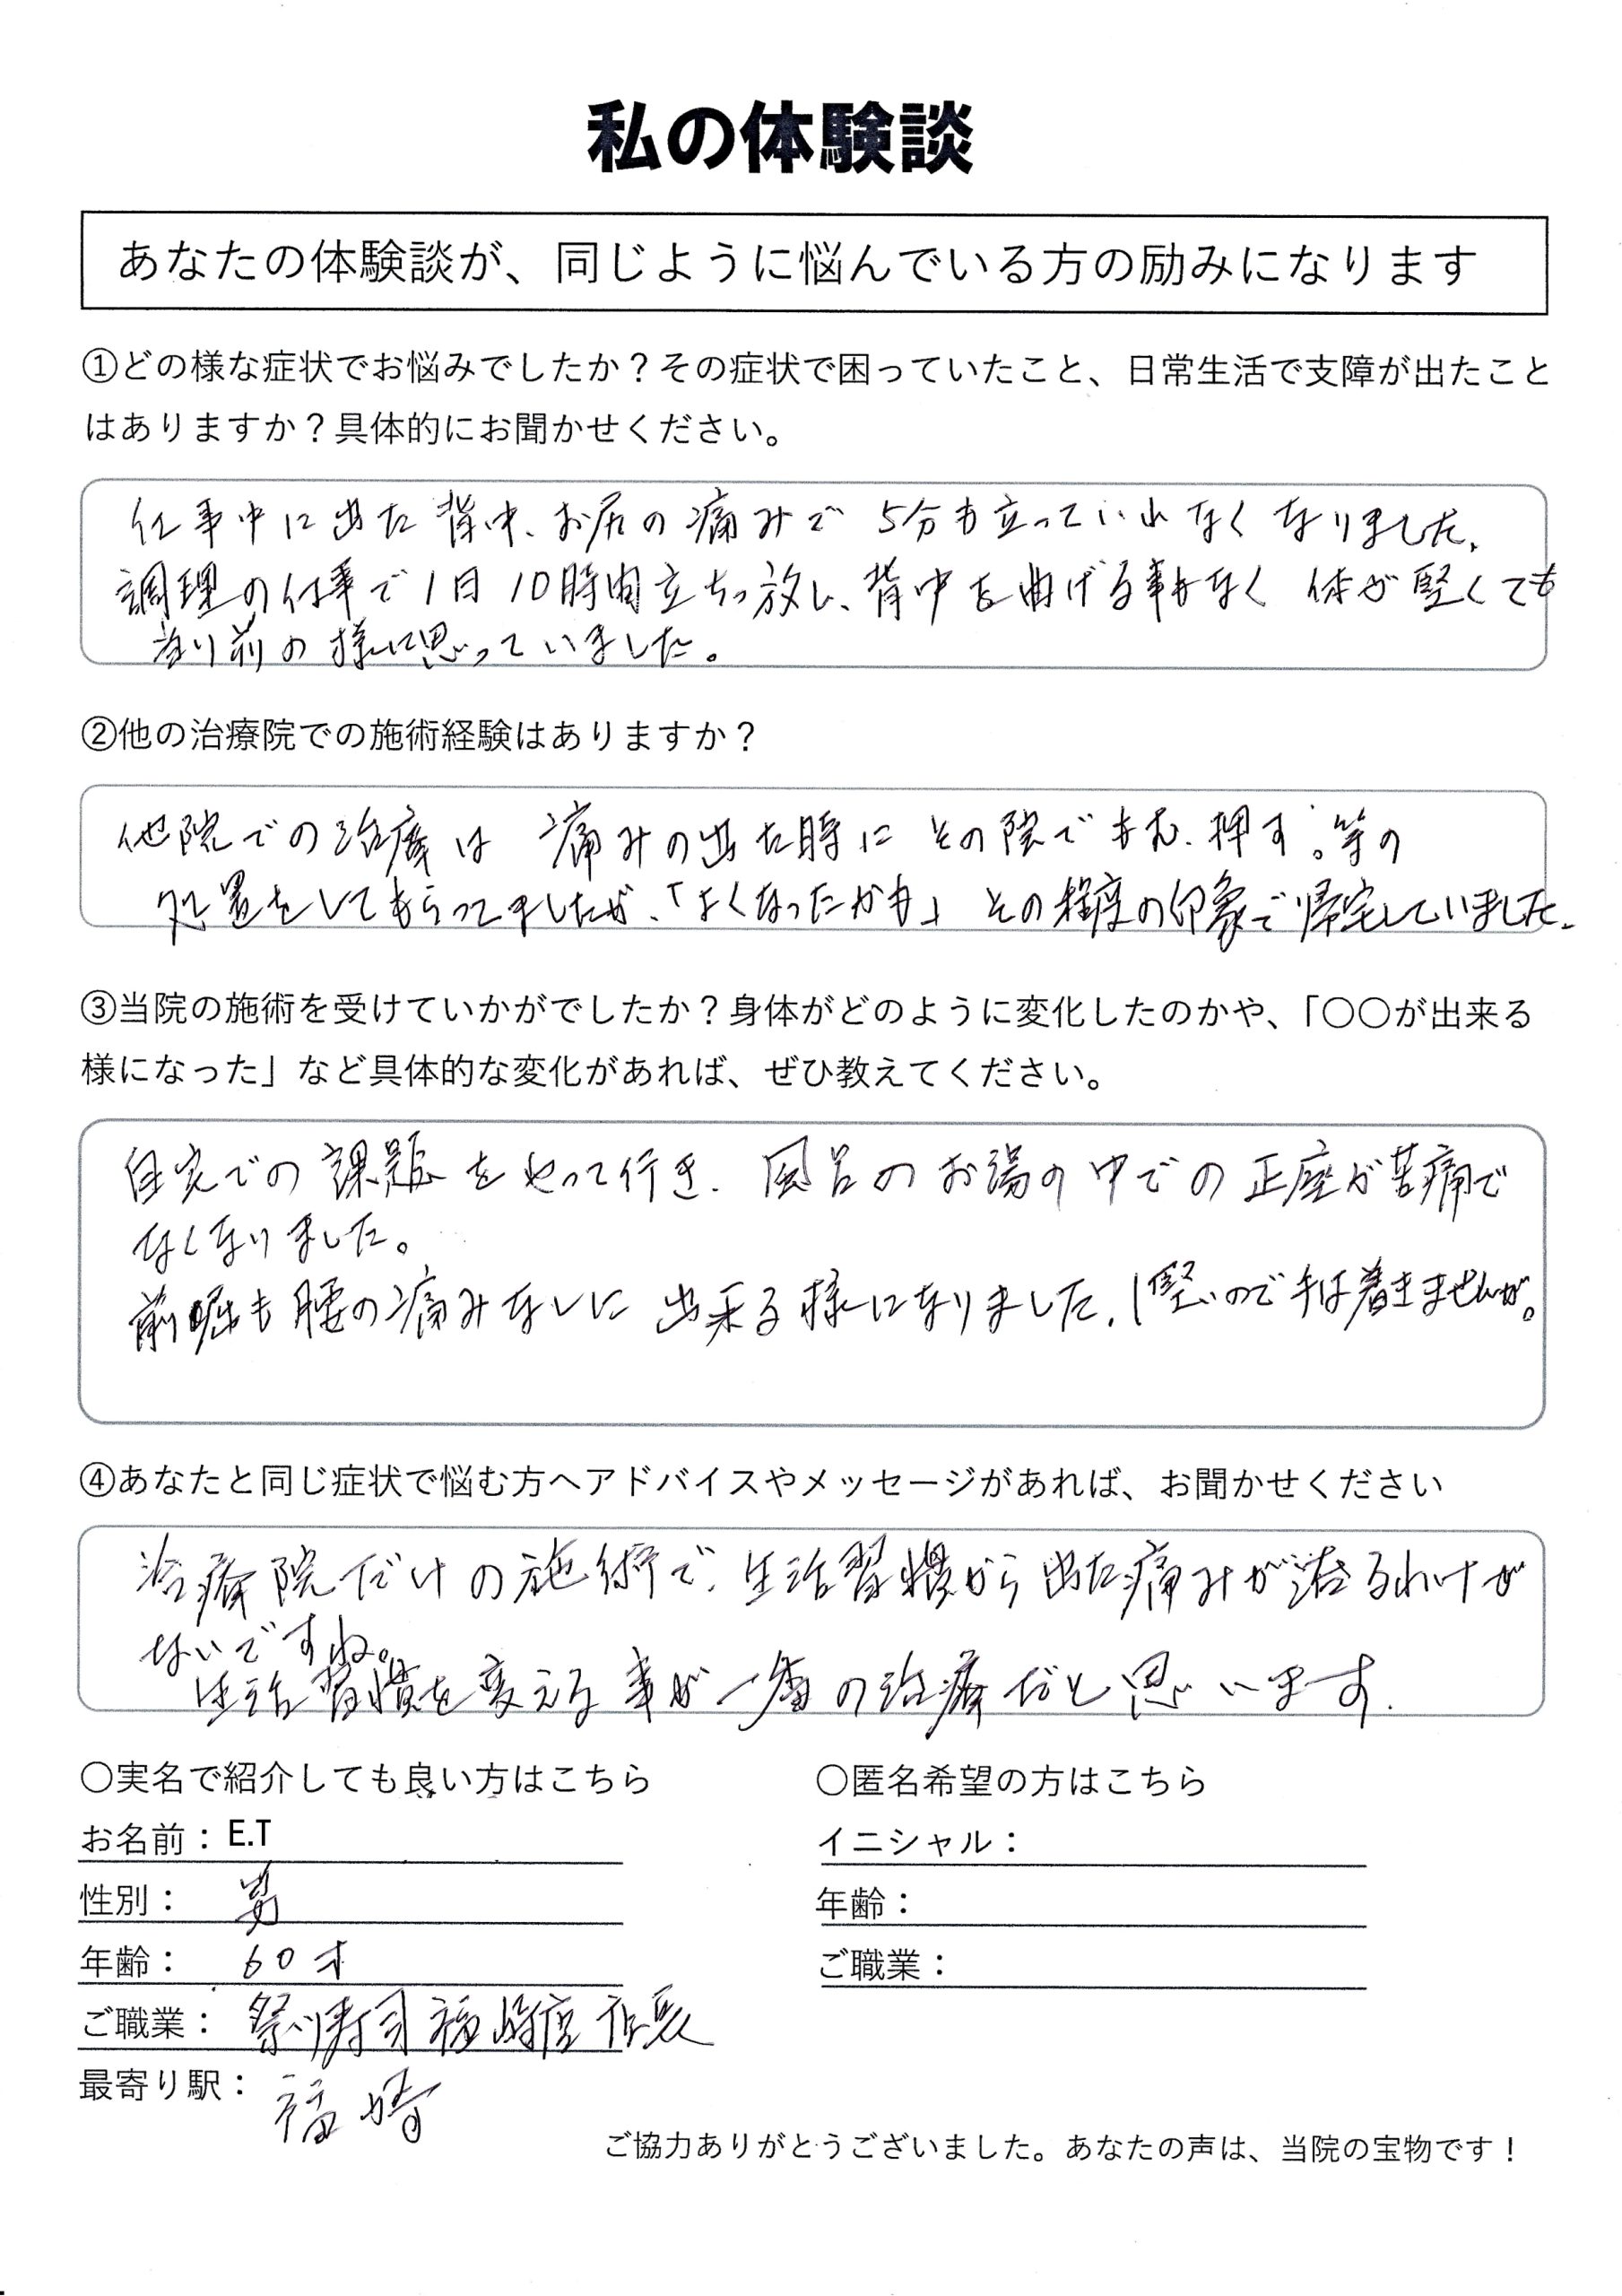 私の体験談
あなたの体験談が、同じように悩んでいる方の励みになります
①どの様な症状でお悩みでしたか？その症状で困っていたこと、日常生活で支障が出たこと
はありますか？具体的にお聞かせください。
仕事中に出た背中、お尻の痛みで 5分も立っていれなくなりました。
調理の仕事で1日10時間立ちっ放し、背中を曲げる事もなく 体が堅くても
当り前の様に思っていました。
②他の治療院での施術経験はありますか？
他院での治療は 痛みの出た時に その院でもむ、押す。等の
処置をしてもらってましたが、「よくなったかも」 その程度の印象で帰宅していました。
③当院の施術を受けていかがでしたか？身体がどのように変化したのかや、「〇〇が出来る
様になった」など具体的な変化があれば、ぜひ教えてください。
自宅での課題をやって行き、風呂のお湯の中での正座が苦痛で
なくなりました。
前屈も腰の痛みなしに 出来る様になりました。(堅いので手は着きませんが。
④あなたと同じ症状で悩む方へアドバイスやメッセージがあれば、お聞かせください
治療院だけの施術で、生活習慣から出た痛みが治るわけが
ないですね。
生活習慣を変える事が一番の治療だと思います。
〇実名で紹介しても良い方はこちら
〇匿名希望の方はこちら
お名前：E.T
イニシャル：
性別： 男
年齢：
年齢： 60才
ご職業：
ご職業： 祭り寿司 福崎店 店長
最寄り駅： 福崎
ご協力ありがとうございました。あなたの声は、当院の宝物です！